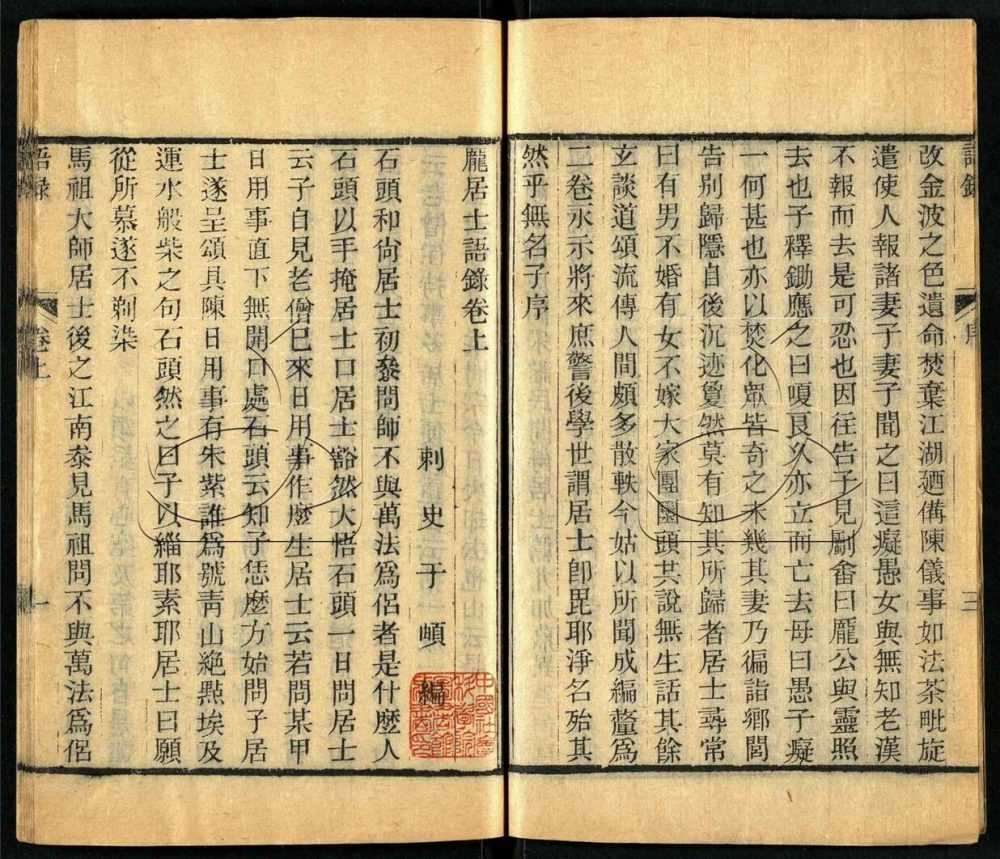 語錄 序 三
改金波之色遺命焚棄江湖廼備陳儀事如法茶毗旋
遣使人報諸妻子妻子聞之曰這癡愚女與無知老漢
不報而去是可忍也因往告子見劚畬曰龐公與靈照
去也子釋鋤應之曰嗄良久亦立而亡去母曰愚子癡
一何甚也亦以焚化眾皆奇之未幾其妻乃徧詣鄉閭
告別歸隱自後沉迹敻然莫有知其所歸者居士尋常
曰有男不婚有女不嫁大家團圞頭共說無生話其餘
玄談道頌流傳人間頗多散軼今姑以所聞成編釐為
二卷永示將來庶警後學世謂居士即毘耶淨名殆其
然乎無名子序
龐居士語錄卷上
刺史于頔編
石頭和尚居士初叅問師不與萬法為侶者是什麼人
石頭以手掩居士口居士豁然大悟石頭一日問居士
云子自見老僧已來日用事作麼生居士云若問某甲
日用事直下無開口處石頭云知子恁麼方始問子居
士遂呈頌具陳日用事有朱紫誰為號青山絕點埃及
運水般柴之句石頭然之曰子以緇耶素耶居士曰願
從所慕遂不剃染
馬祖大師居士後之江南叅見馬祖問不與萬法為侶
語錄 卷上 一